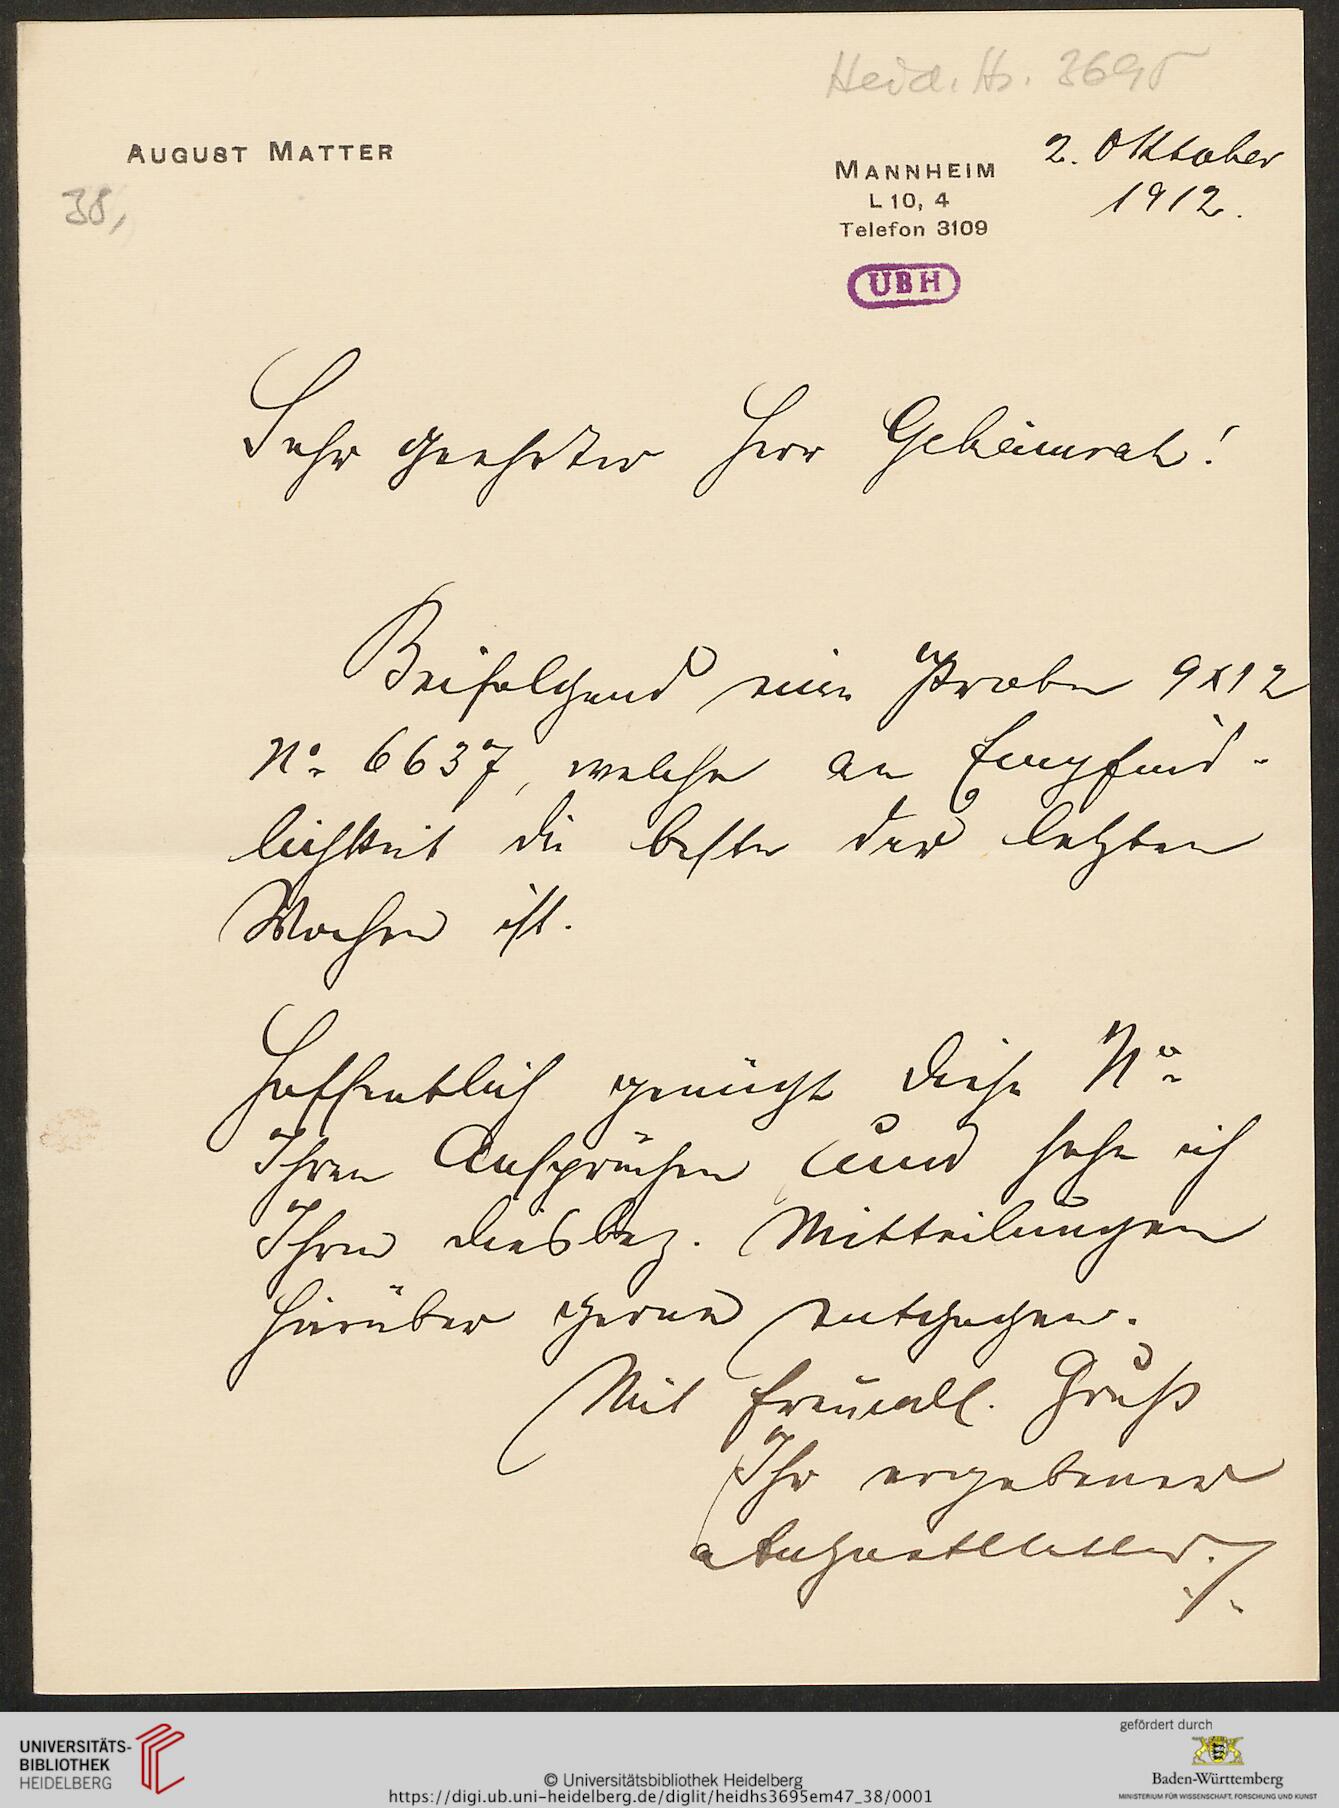 Heid. Hs. 3695
AUGUST MATTER
38,
MANNHEIM
L 10, 4
Telefon 3109
2. Oktober
1912.
UBH
Sehr geehrter Herr Geheimrat!
Beifolgend eine Probe 9x12
No. 6637, welche an Empfind-
lichkeit die beste der letzten
Wochen ist.
Hoffentlich genügt diese No.
Ihren Ansprüchen und sehe ich
Ihren diesbez. Mitteilungen
hierüber gerne entgegen.
Mit freundl. Gruß
Ihr ergebener
August Matter.
UNIVERSITÄTS-
BIBLIOTHEK
HEIDELBERG
© Universitätsbibliothek Heidelberg
https://digi.ub.uni-heidelberg.de/diglit/heidhs3695em47_38/0001
gefördert durch
Baden-Württemberg
MINISTERIUM FÜR WISSENSCHAFT, FORSCHUNG UND KUNST